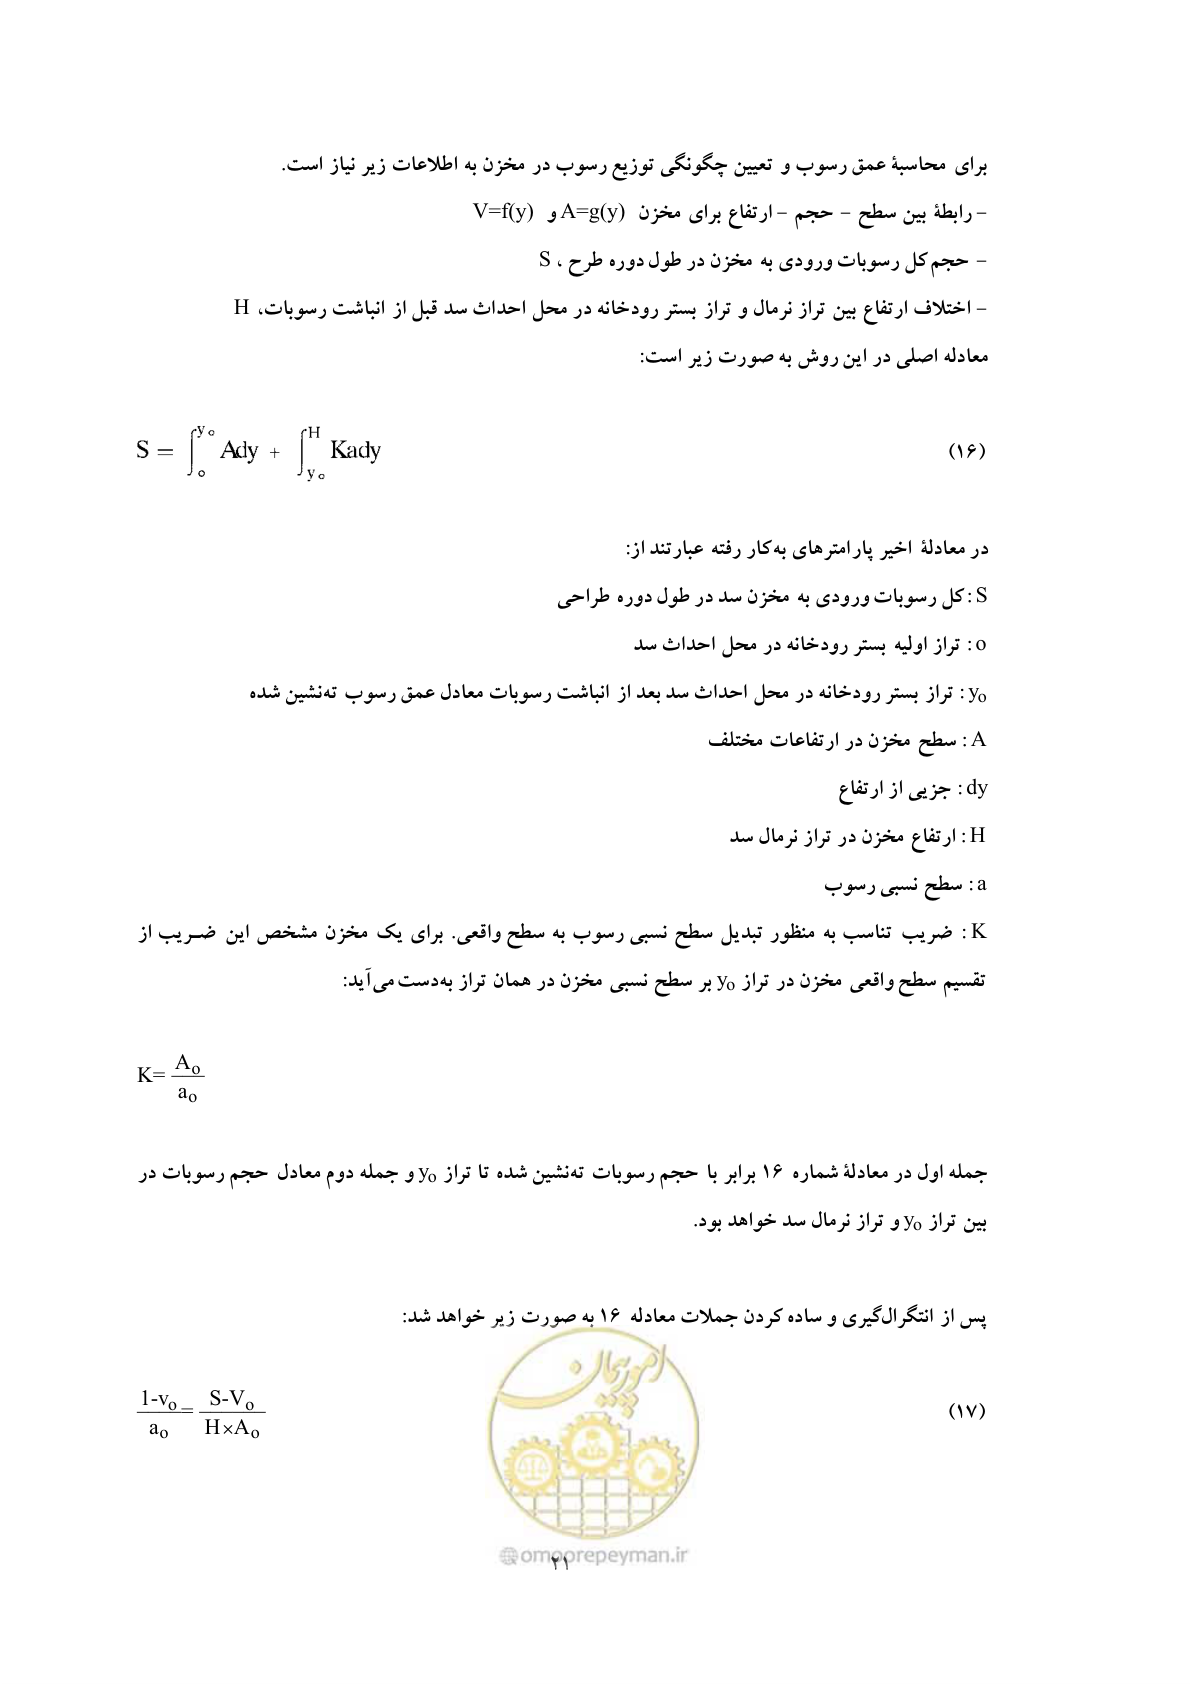 برای محاسبهٔ عمق رسوب و تعیین چگونگی توزیع رسوب در مخزن به اطلاعات زیر نیاز است.
– رابطهٔ بین سطح – حجم – ارتفاع برای مخزن A=g(y) و V=f(y)
– حجم کل رسوبات ورودی به مخزن در طول دوره طرح ، S
– اختلاف ارتفاع بین تراز نرمال و تراز بستر رودخانه در محل احداث سد قبل از انباشت رسوبات، H
معادله اصلی در این روش به صورت زیر است:
S = ∫₀^{y₀} Ady + ∫_{y₀}^{H} Kady (۱۶)
در معادلهٔ اخیر پارامترهای به‌کار رفته عبارتند از:
S : کل رسوبات ورودی به مخزن سد در طول دوره طراحی
o : تراز اولیه بستر رودخانه در محل احداث سد
y₀ : تراز بستر رودخانه در محل احداث سد بعد از انباشت رسوبات معادل عمق رسوب ته‌نشین شده
A : سطح مخزن در ارتفاعات مختلف
dy : جزیی از ارتفاع
H : ارتفاع مخزن در تراز نرمال سد
a : سطح نسبی رسوب
K : ضریب تناسب به منظور تبدیل سطح نسبی رسوب به سطح واقعی. برای یک مخزن مشخص این ضریب از
تقسیم سطح واقعی مخزن در تراز y₀ بر سطح نسبی مخزن در همان تراز به‌دست می‌آید:
K= A₀/a₀
جمله اول در معادلهٔ شماره ۱۶ برابر با حجم رسوبات ته‌نشین شده تا تراز y₀ و جمله دوم معادل حجم رسوبات در
بین تراز y₀ و تراز نرمال سد خواهد بود.
پس از انتگرال‌گیری و ساده کردن جملات معادله ۱۶ به صورت زیر خواهد شد:
(1-v₀)/a₀ = (S-V₀)/(H×A₀) (۱۷)
امور پیمان
@omoorepeyman.ir
۲۱